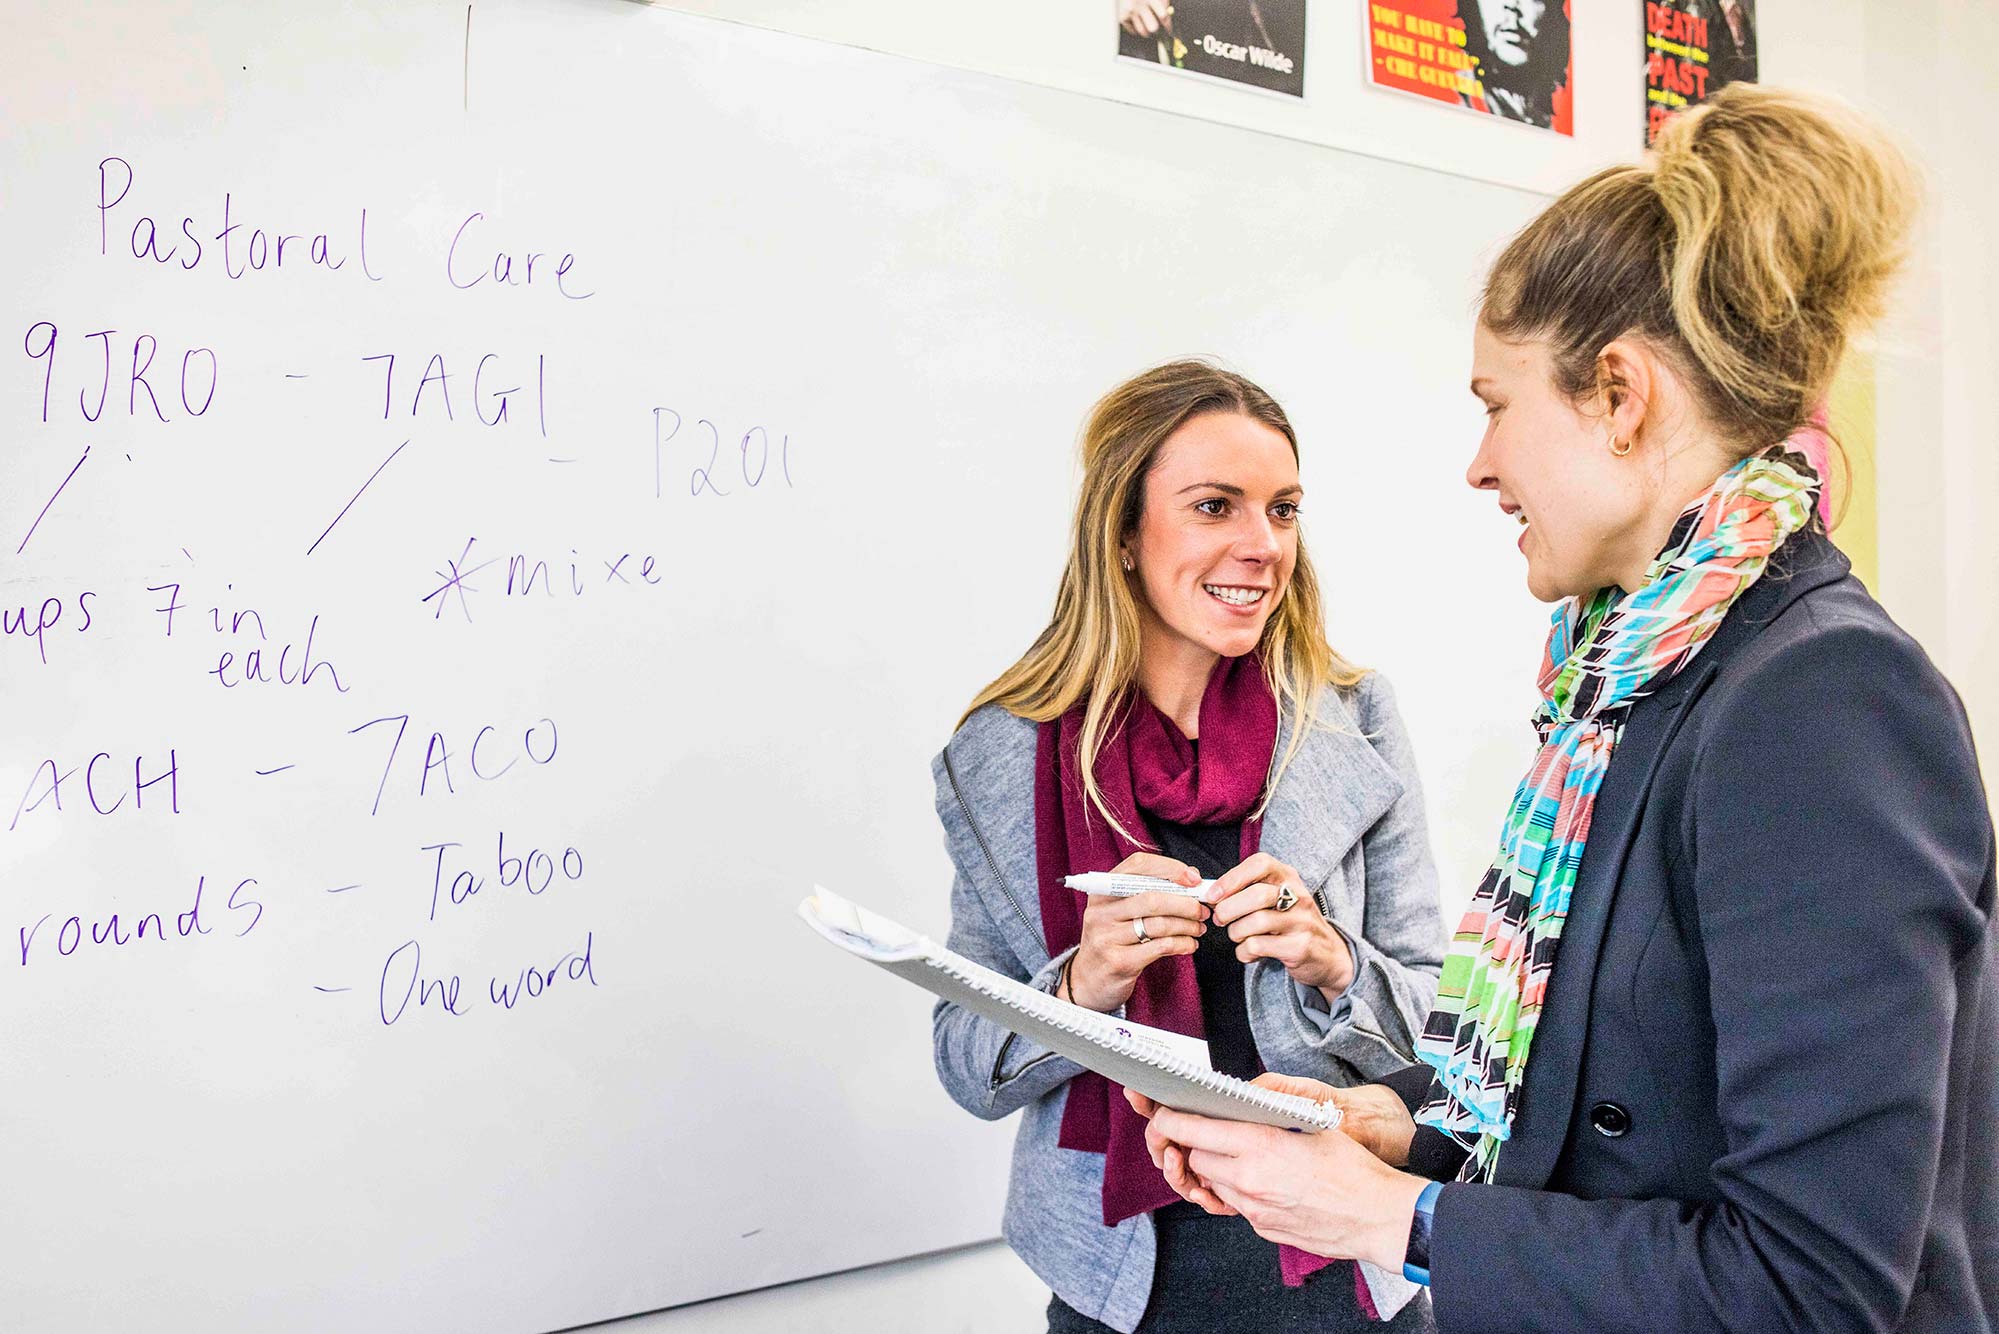 - Oscar Wilde
YOU HAVE TO
MAKE IT FALL"
- CHE GUEVARA
DEATH
between the
PAST
and the
Pastoral Care
9JRO - 7AG1 - P201
ups 7 in each
*mixe
ACH - 7ACO
rounds - Taboo
- One word